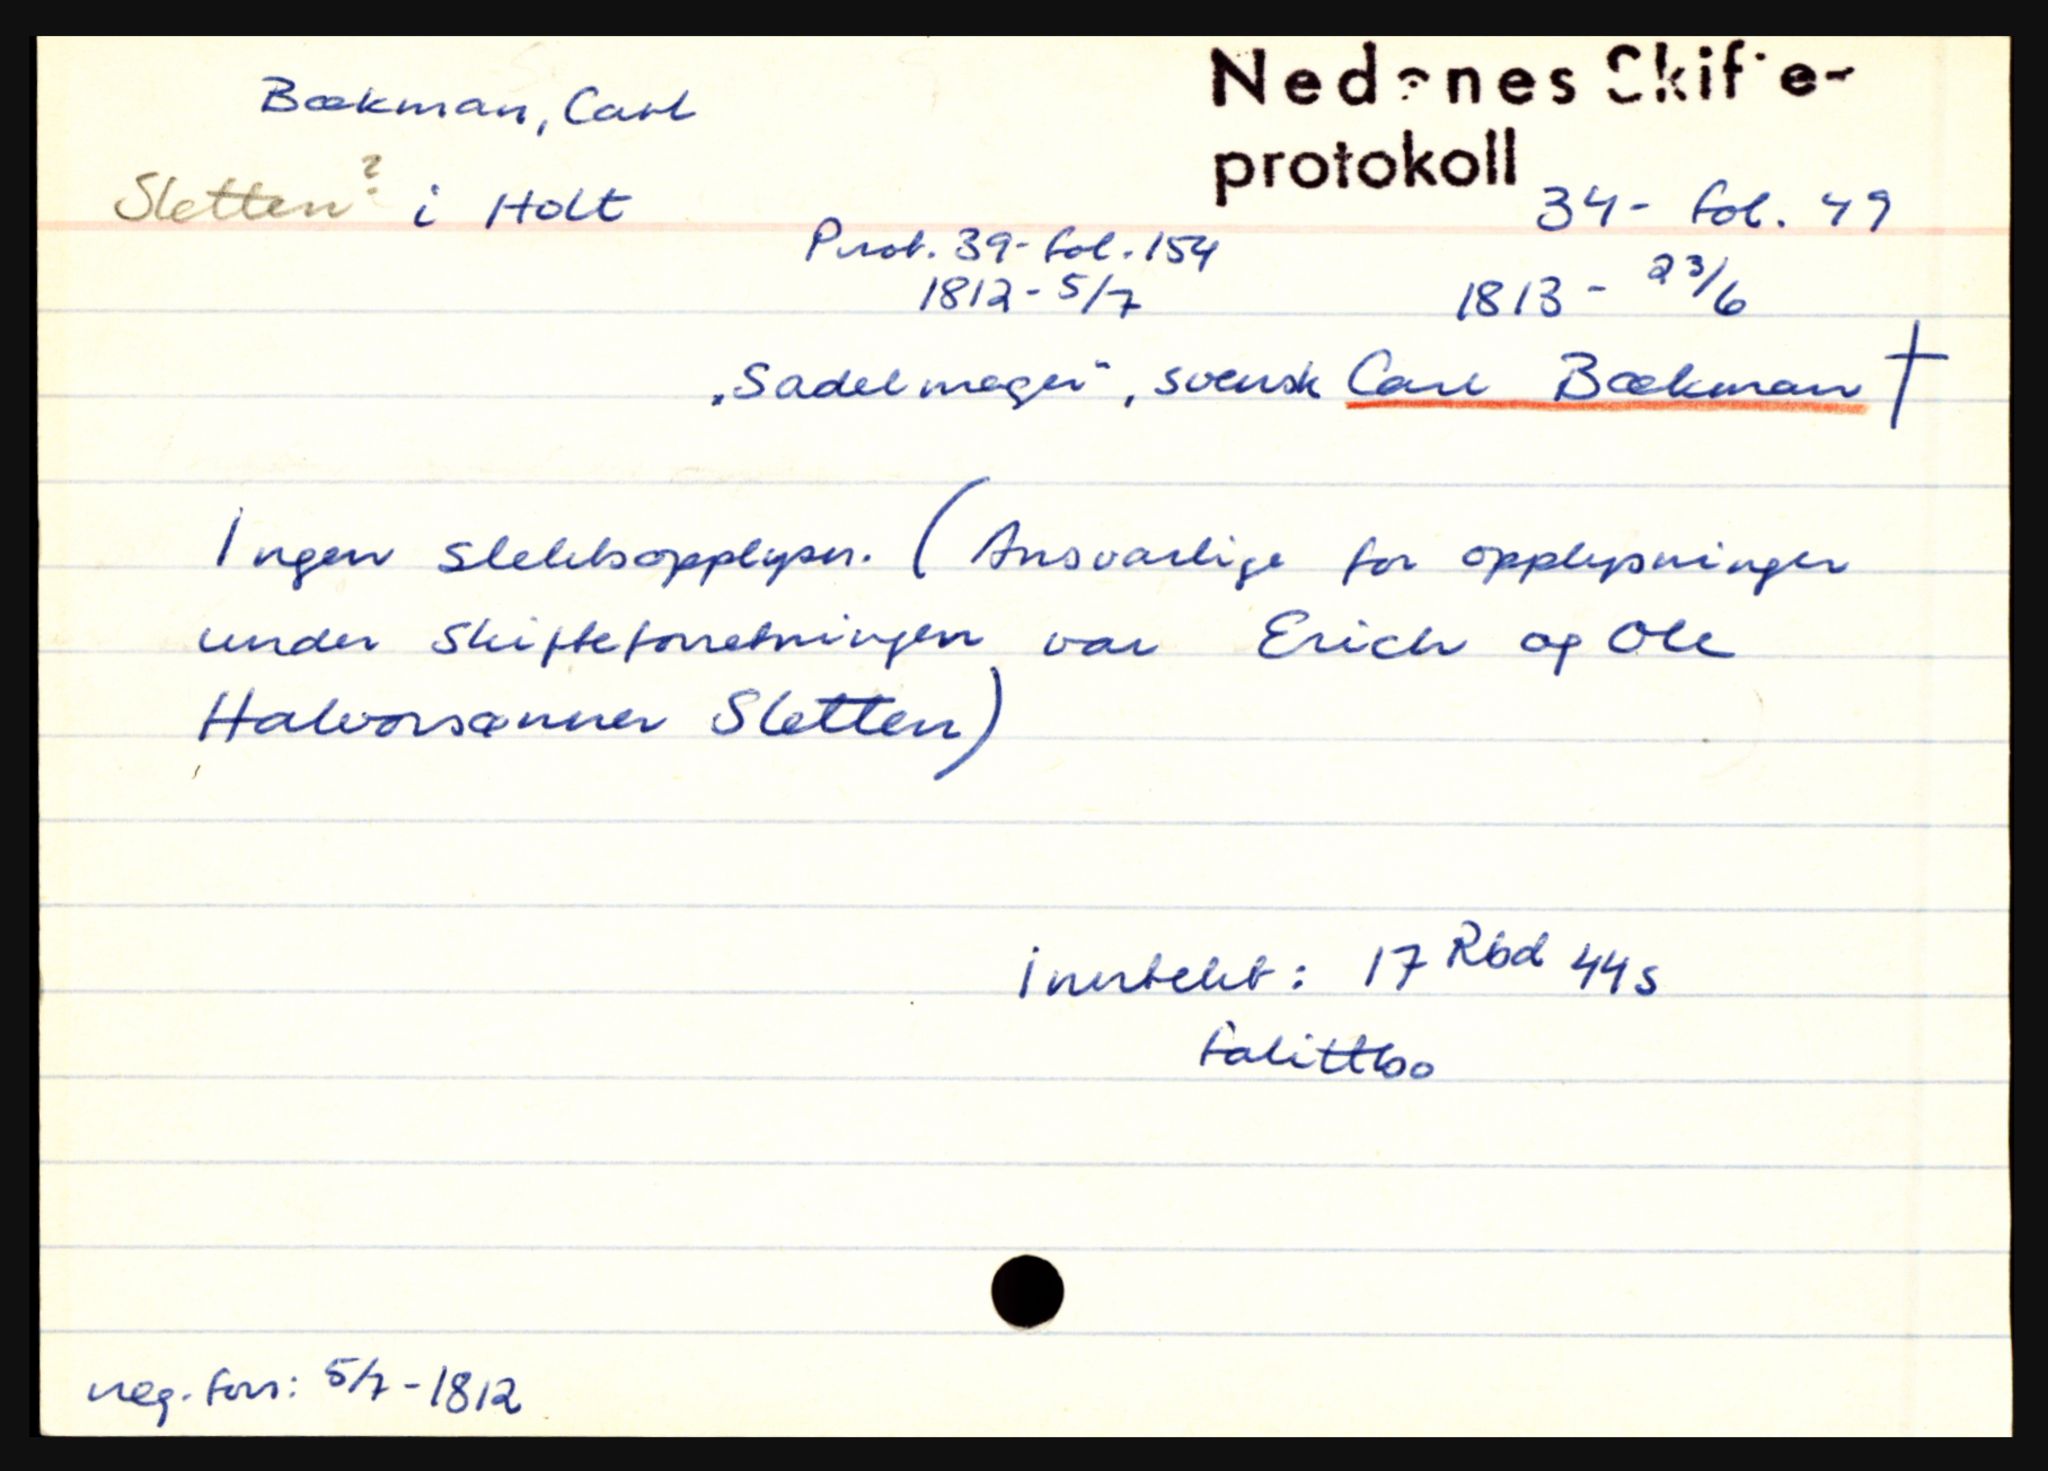 Bækman, Carl
Nedenes Skifte-
protokoll
Sletten? i Holt
34- fol. 49
Prot. 39- fol. 154
1812 - 5/7
1813 - 23/6
"Sadelmager", svensk Carl Bækman †
Ingen slektsopplysn. (Ansvarlige for opplysninger
under skifteforretningen var Erich og Ole
Halvorsønner Sletten)
inntekt: 17 Rbd 44 s
falittbo
reg. forr: 5/7 - 1812